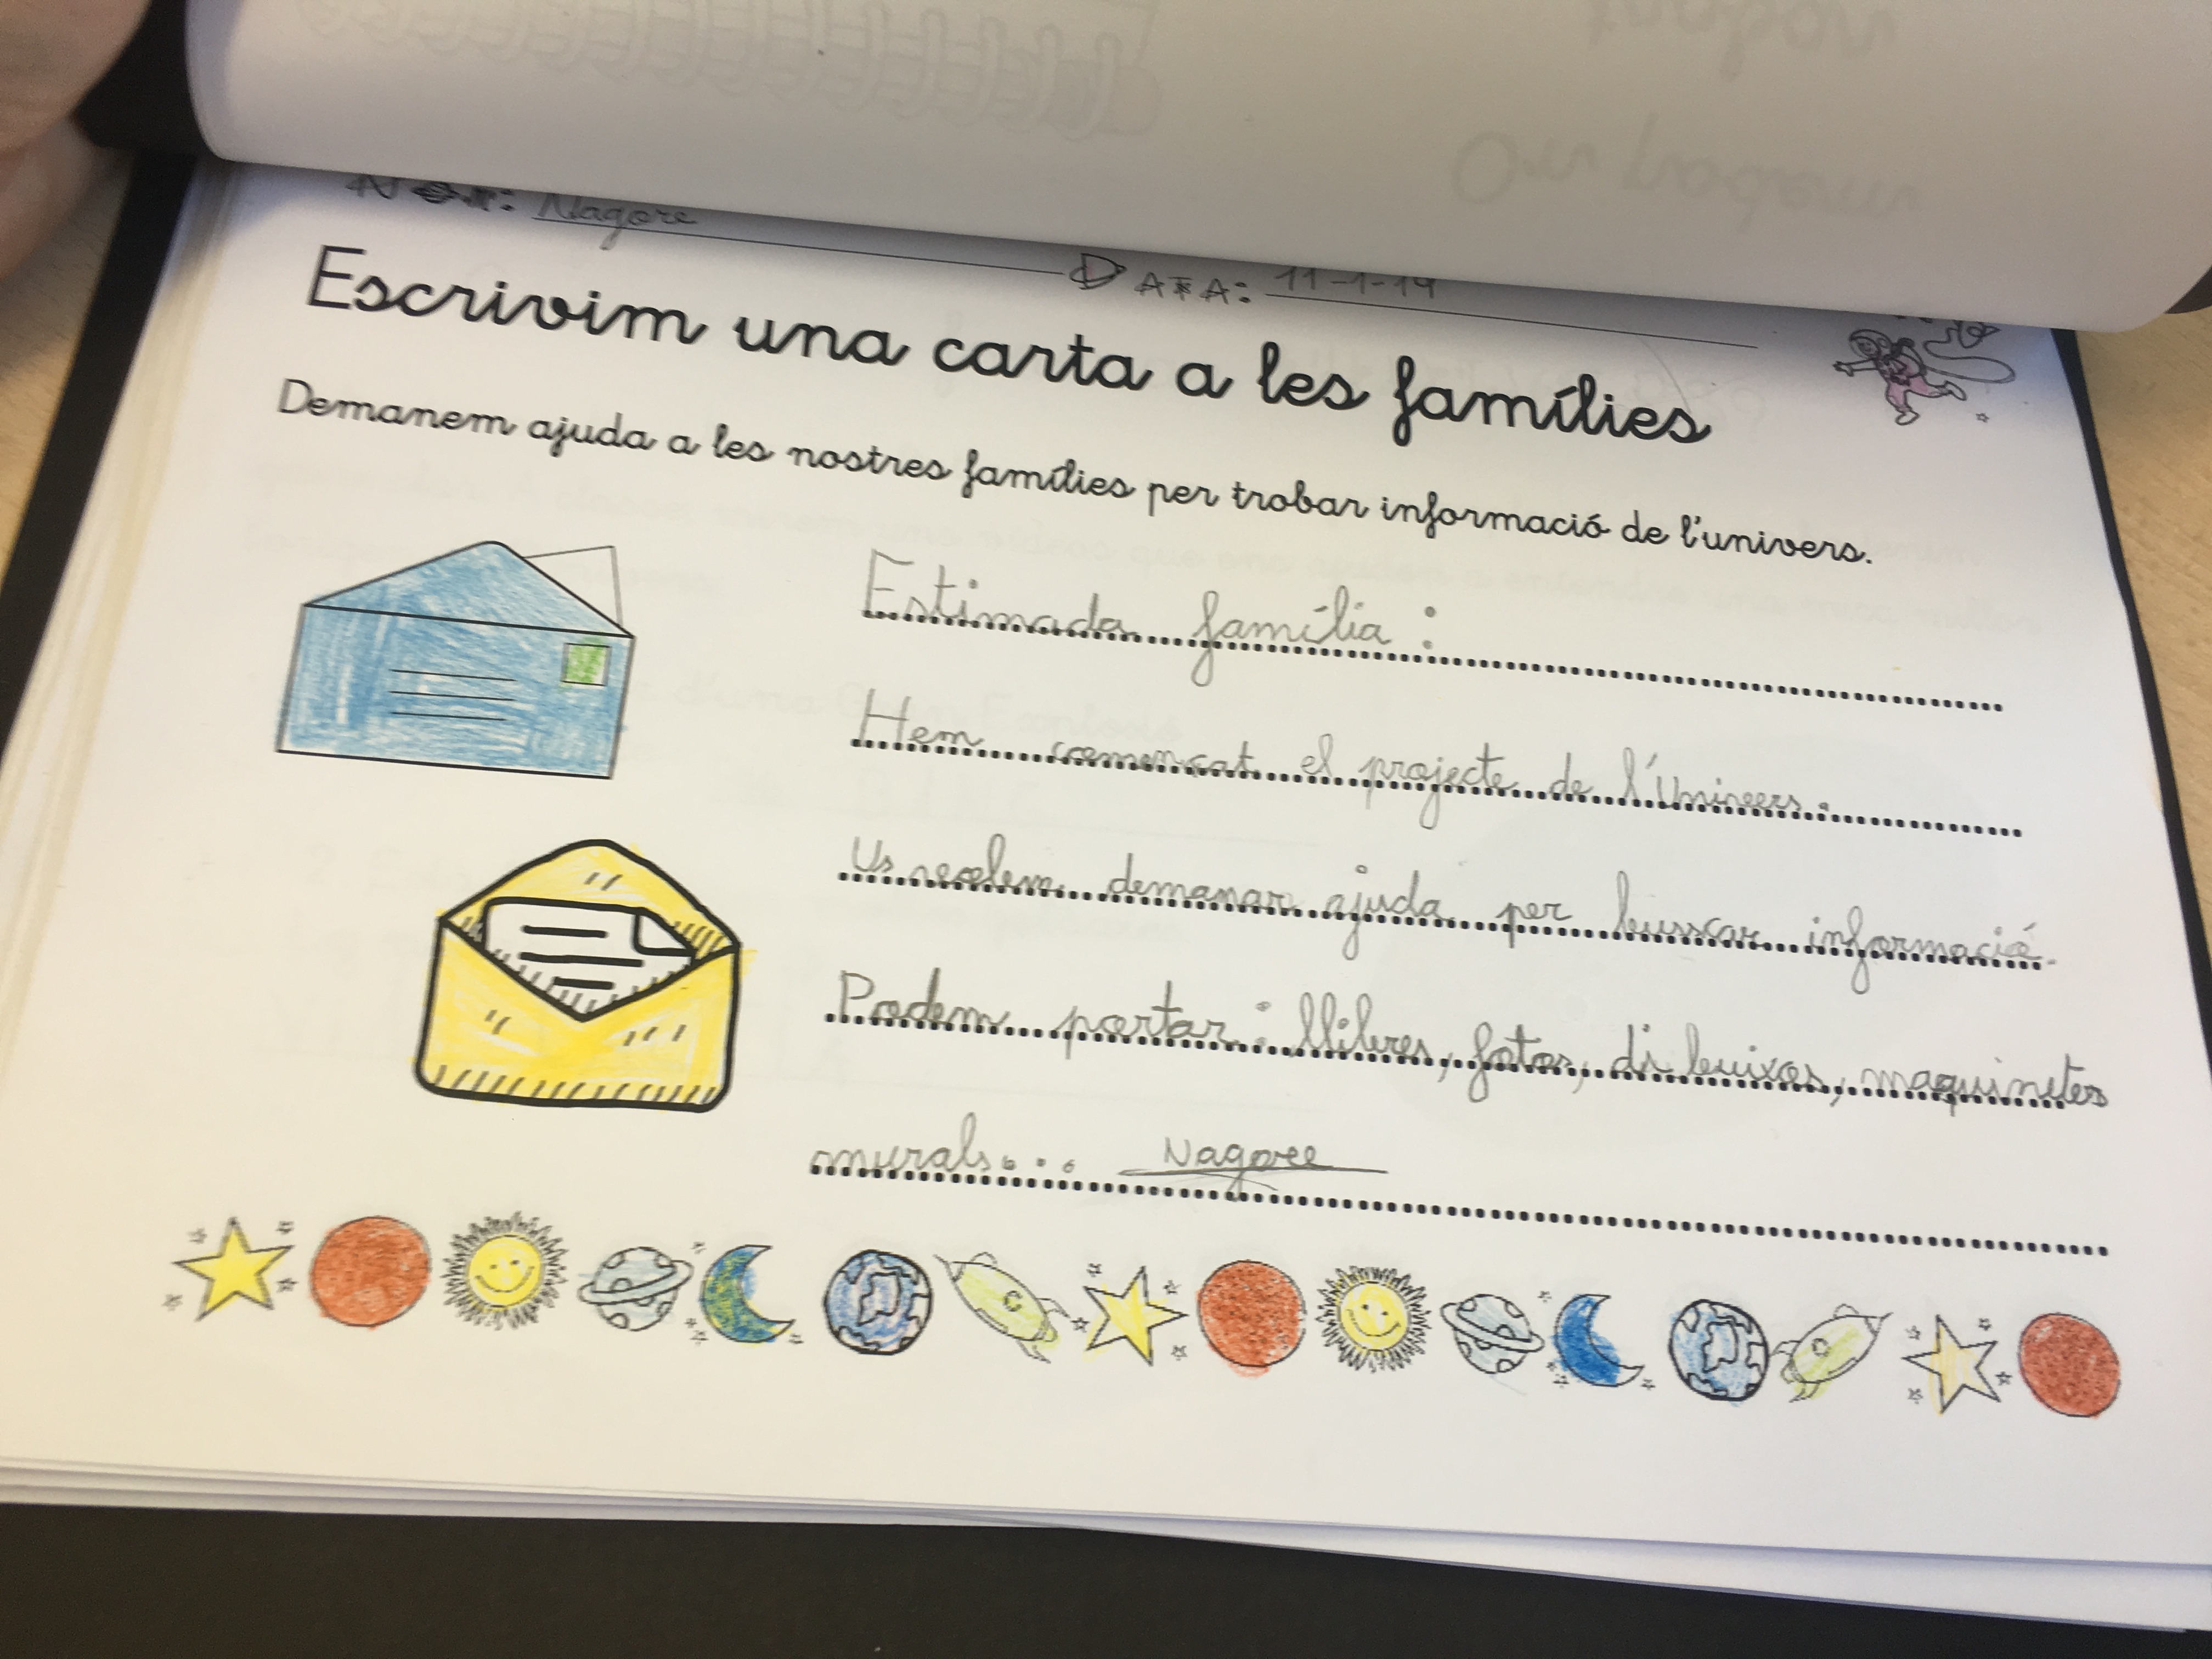 NOM: Nagore
DATA: 11-1-19
Escrivim una carta a les famílies
Demanem ajuda a les nostres famílies per trobar informació de l'univers.
Estimada família:
Hem començat el projecte de l'Univers.
Us volem demanar ajuda per buscar informació.
Podem portar: llibres, fotos, dibuixos, maquinetes
murals... Nagore